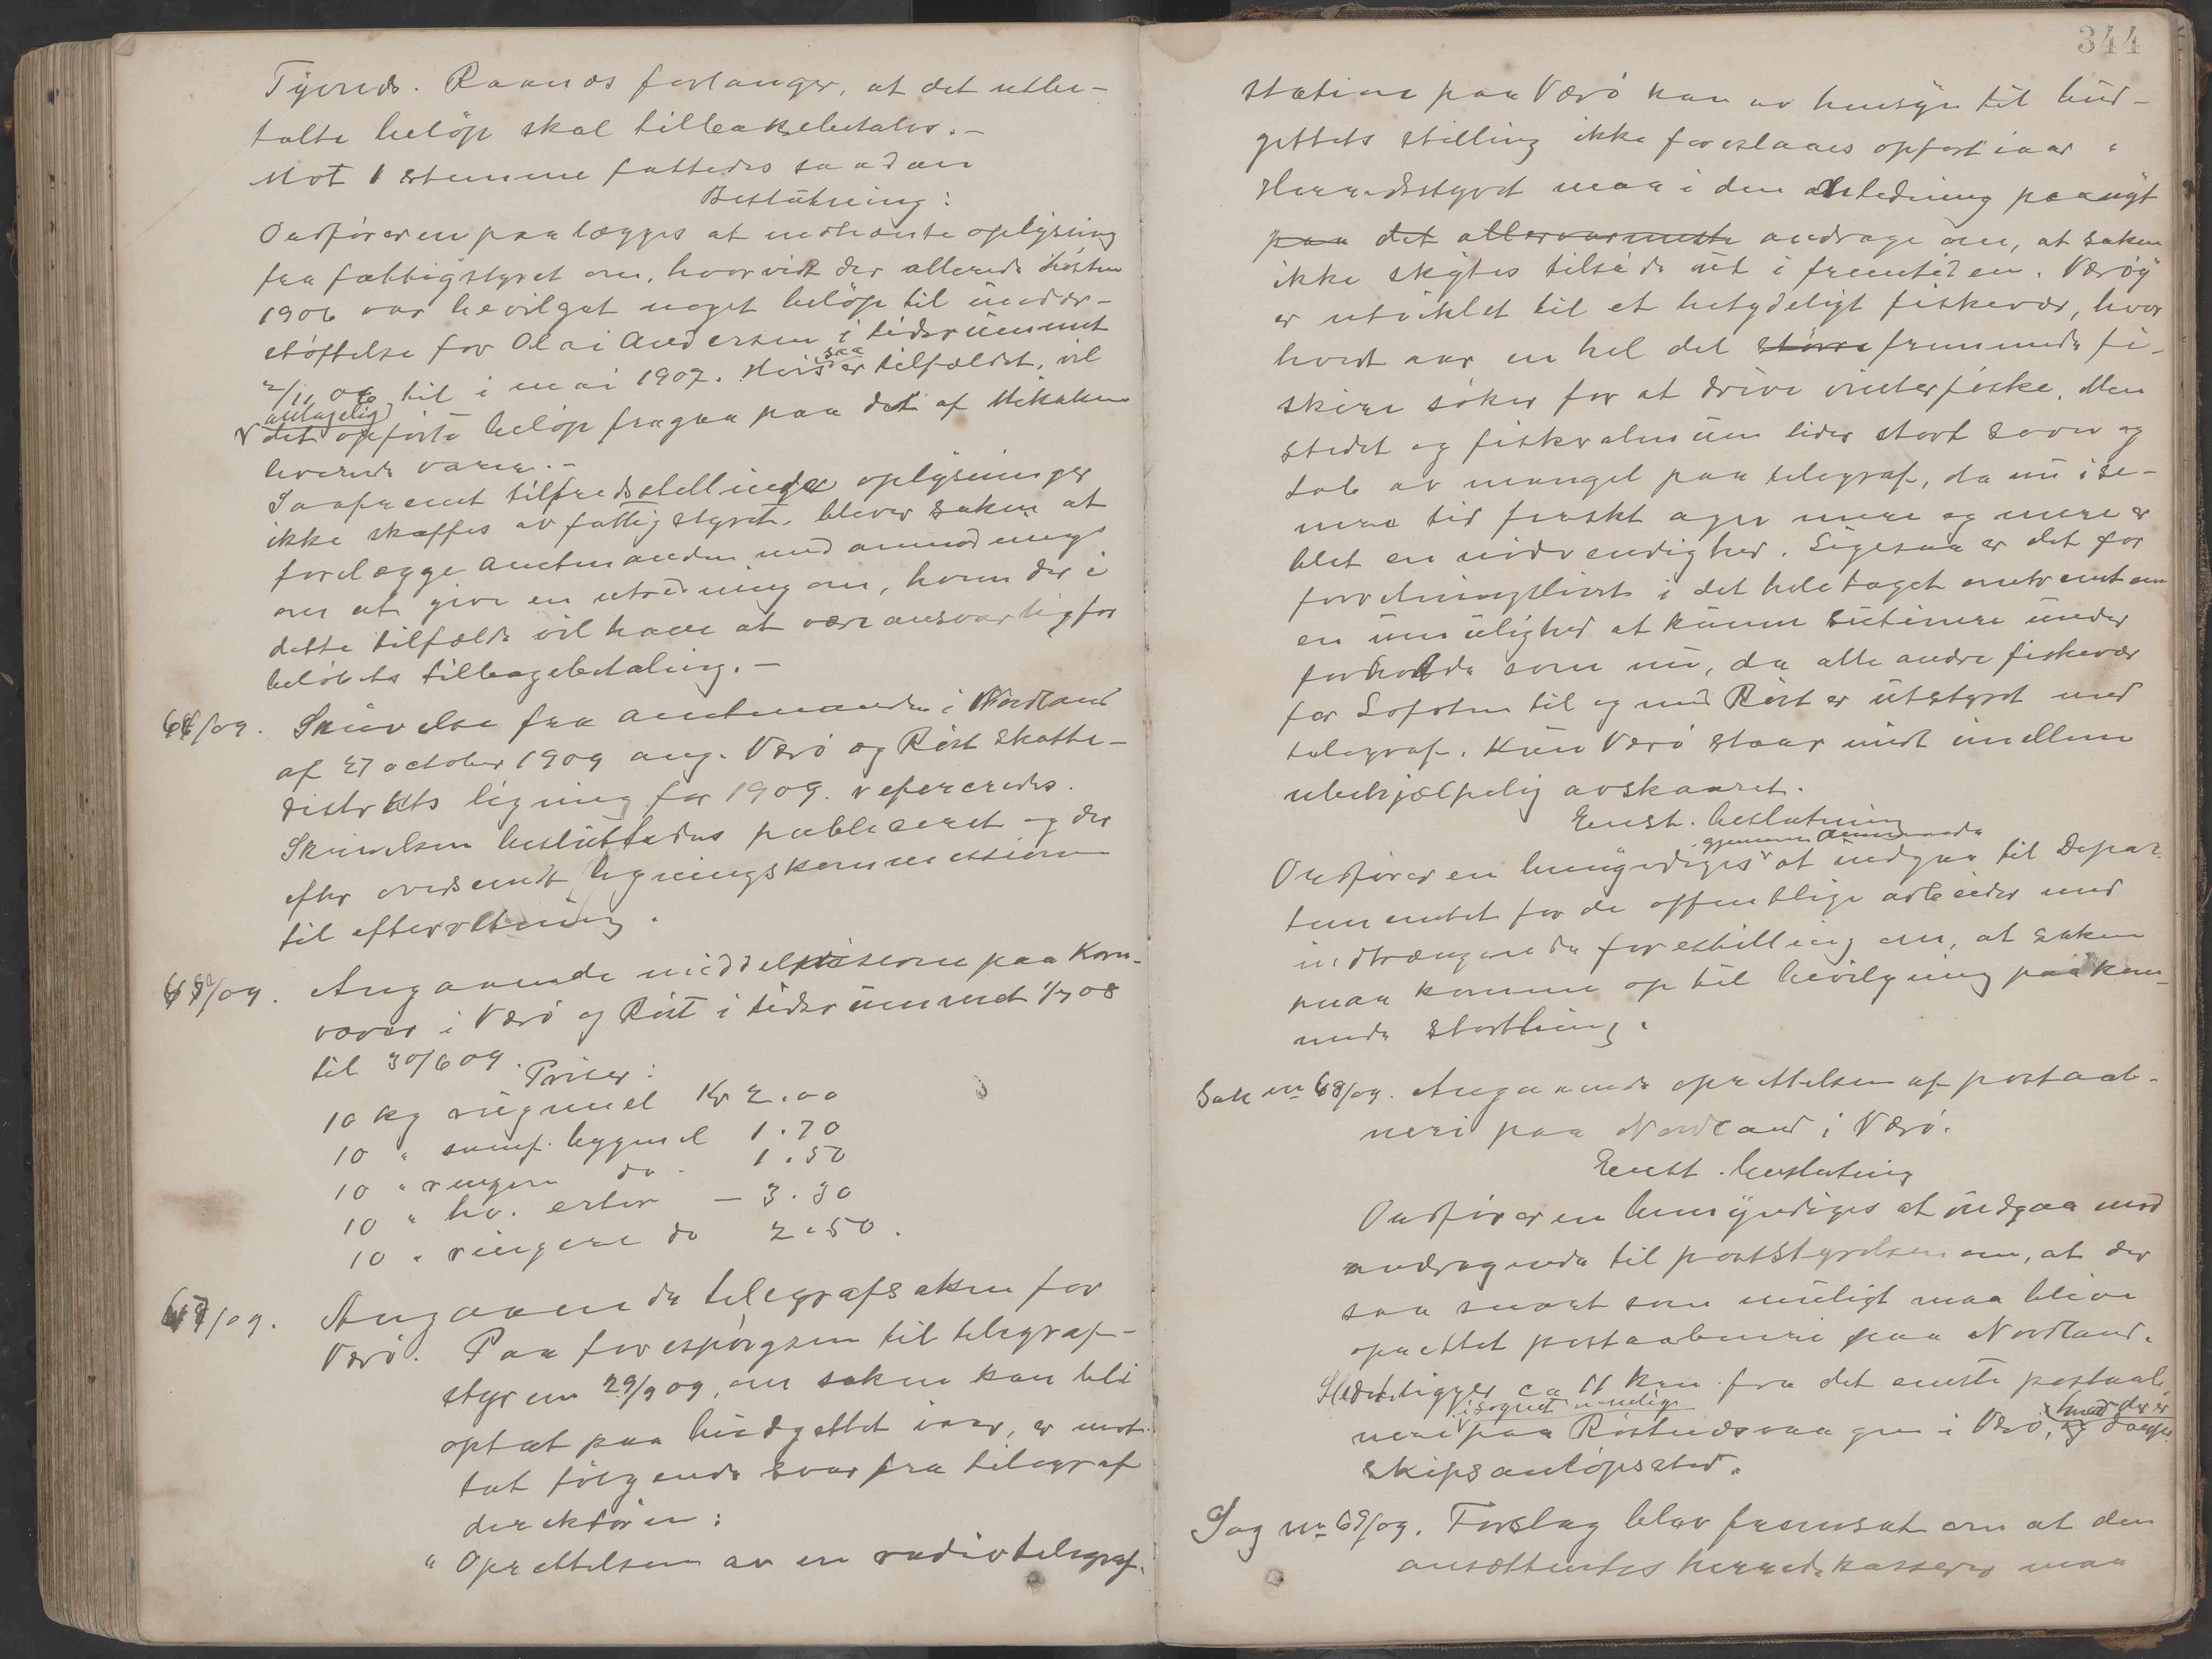 Raanæs forlanger, at det utbe-
talte beløp skal tilbakebetales.-
Mot 1 stemme fattedes saadan
Beslutning:
Ordføreren paalægges at indhente oplysning
fra fattigstyret om, hvorvidt der allerede høsten
1906 var bevilget noget beløp til under-
støttelse for Olai Andersen i tidsrummet
2/11 06 til i mai 1907. Hvis saa er tilfældet, vil
antagelig
det opførte beløp fragaa paa det af
leverede varer.-
Saafremt tilfredsstillende oplysninger
ikke skaffes av fattigstyret, bliver saken at
forelægge Amtmanden med anmodning
om at give en utredning om, hvem der i
dette tilfælde vil have at være ansvarlig for
beløbets tilbagebetaling.-
64/09. Skrivelse fra Amtmanden i Nordland
af 27 october 1909 ang. Værö og Röst skatte-
distrikts ligning for 1909 refereredes.
Skrivelsen besluttedes publiceret og der
efter oversendt ligningskommissionen
til efterretning.
/09. Angaaende middelpriserne paa Korn-
varer i Værö og Röst i tidsrummet 1/7 08
til 30/6 09.
Priser:
10 kg rugmel Kr 2.00
10 " bygmel 1.70
10 " ringere do. 1.50
10 " hv. erter - 3.30
10 " ringere do 2.50.
67/09. Angaaende telegrafsaken for
Værö. Paa forespørgsel til telegraf-
styren 29/9 09, om saken kan bli
optat paa budgettet iaar, er mot-
tat følgende svar fra telegraf
direktøren:
" Oprettelsen av en radiotelegraf-
344
station paa Værö kan av hensyn til bud-
gettets stilling ikke foreslaaes opført iaar "
Herredsstyret maa i den anledning paanyt
paa det allervarmeste andrage om, at saken
ikke skytes tilside ut i fremtiden. Værøy
er utviklet til et betydeligt fiskevær, hvor
hvert aar en hel del større fremmede fi-
skere søker for at drive vinterfiske. Men
stedet og fiskeralmuen lider stort savn og
tab av mangel paa telegraf, da nu i se-
nere tid ferskt agn mere og mere er
blet en nødvendighed. Ligesaa er det for
forretningslivet i det hele taget omtrent en
en umulighed at kunne under
forholde som nu, da alle andre fiskevær
for Lofoten til og med Röst er utstyret med
telegraf. Kun Værö staar midt imellem
ubehjælpelig avskaaret.
Enst. beslutning
gjennem Amtmanden
Ordføreren bemyndiges at indgaa til Depar-
tementet for de offentlige arbeider med
indtrængende forestilling om, at saken
maa komme op til bevilgning paa kom-
mende storthing.
Sak nr 68/09. Angaaende oprettelsen af postaab-
neri paa Nordland i Værö.
Enst. beslutning
Ordføreren bemyndiges at indgaa med
andragende til poststyrelsen om, at der
saa snart som muligt maa blive
oprettet postaabneri paa Nordland.
Stedet ligger ca 11 km fra det eneste postaab-
i sognet nemlig hvor der er
neri paa Röstnesvaagen i Værö, og damp-
skipsanløpssted.
Sag nr 69/09. Forslag blev fremsat om at den
ansættendes herredskasserer maa